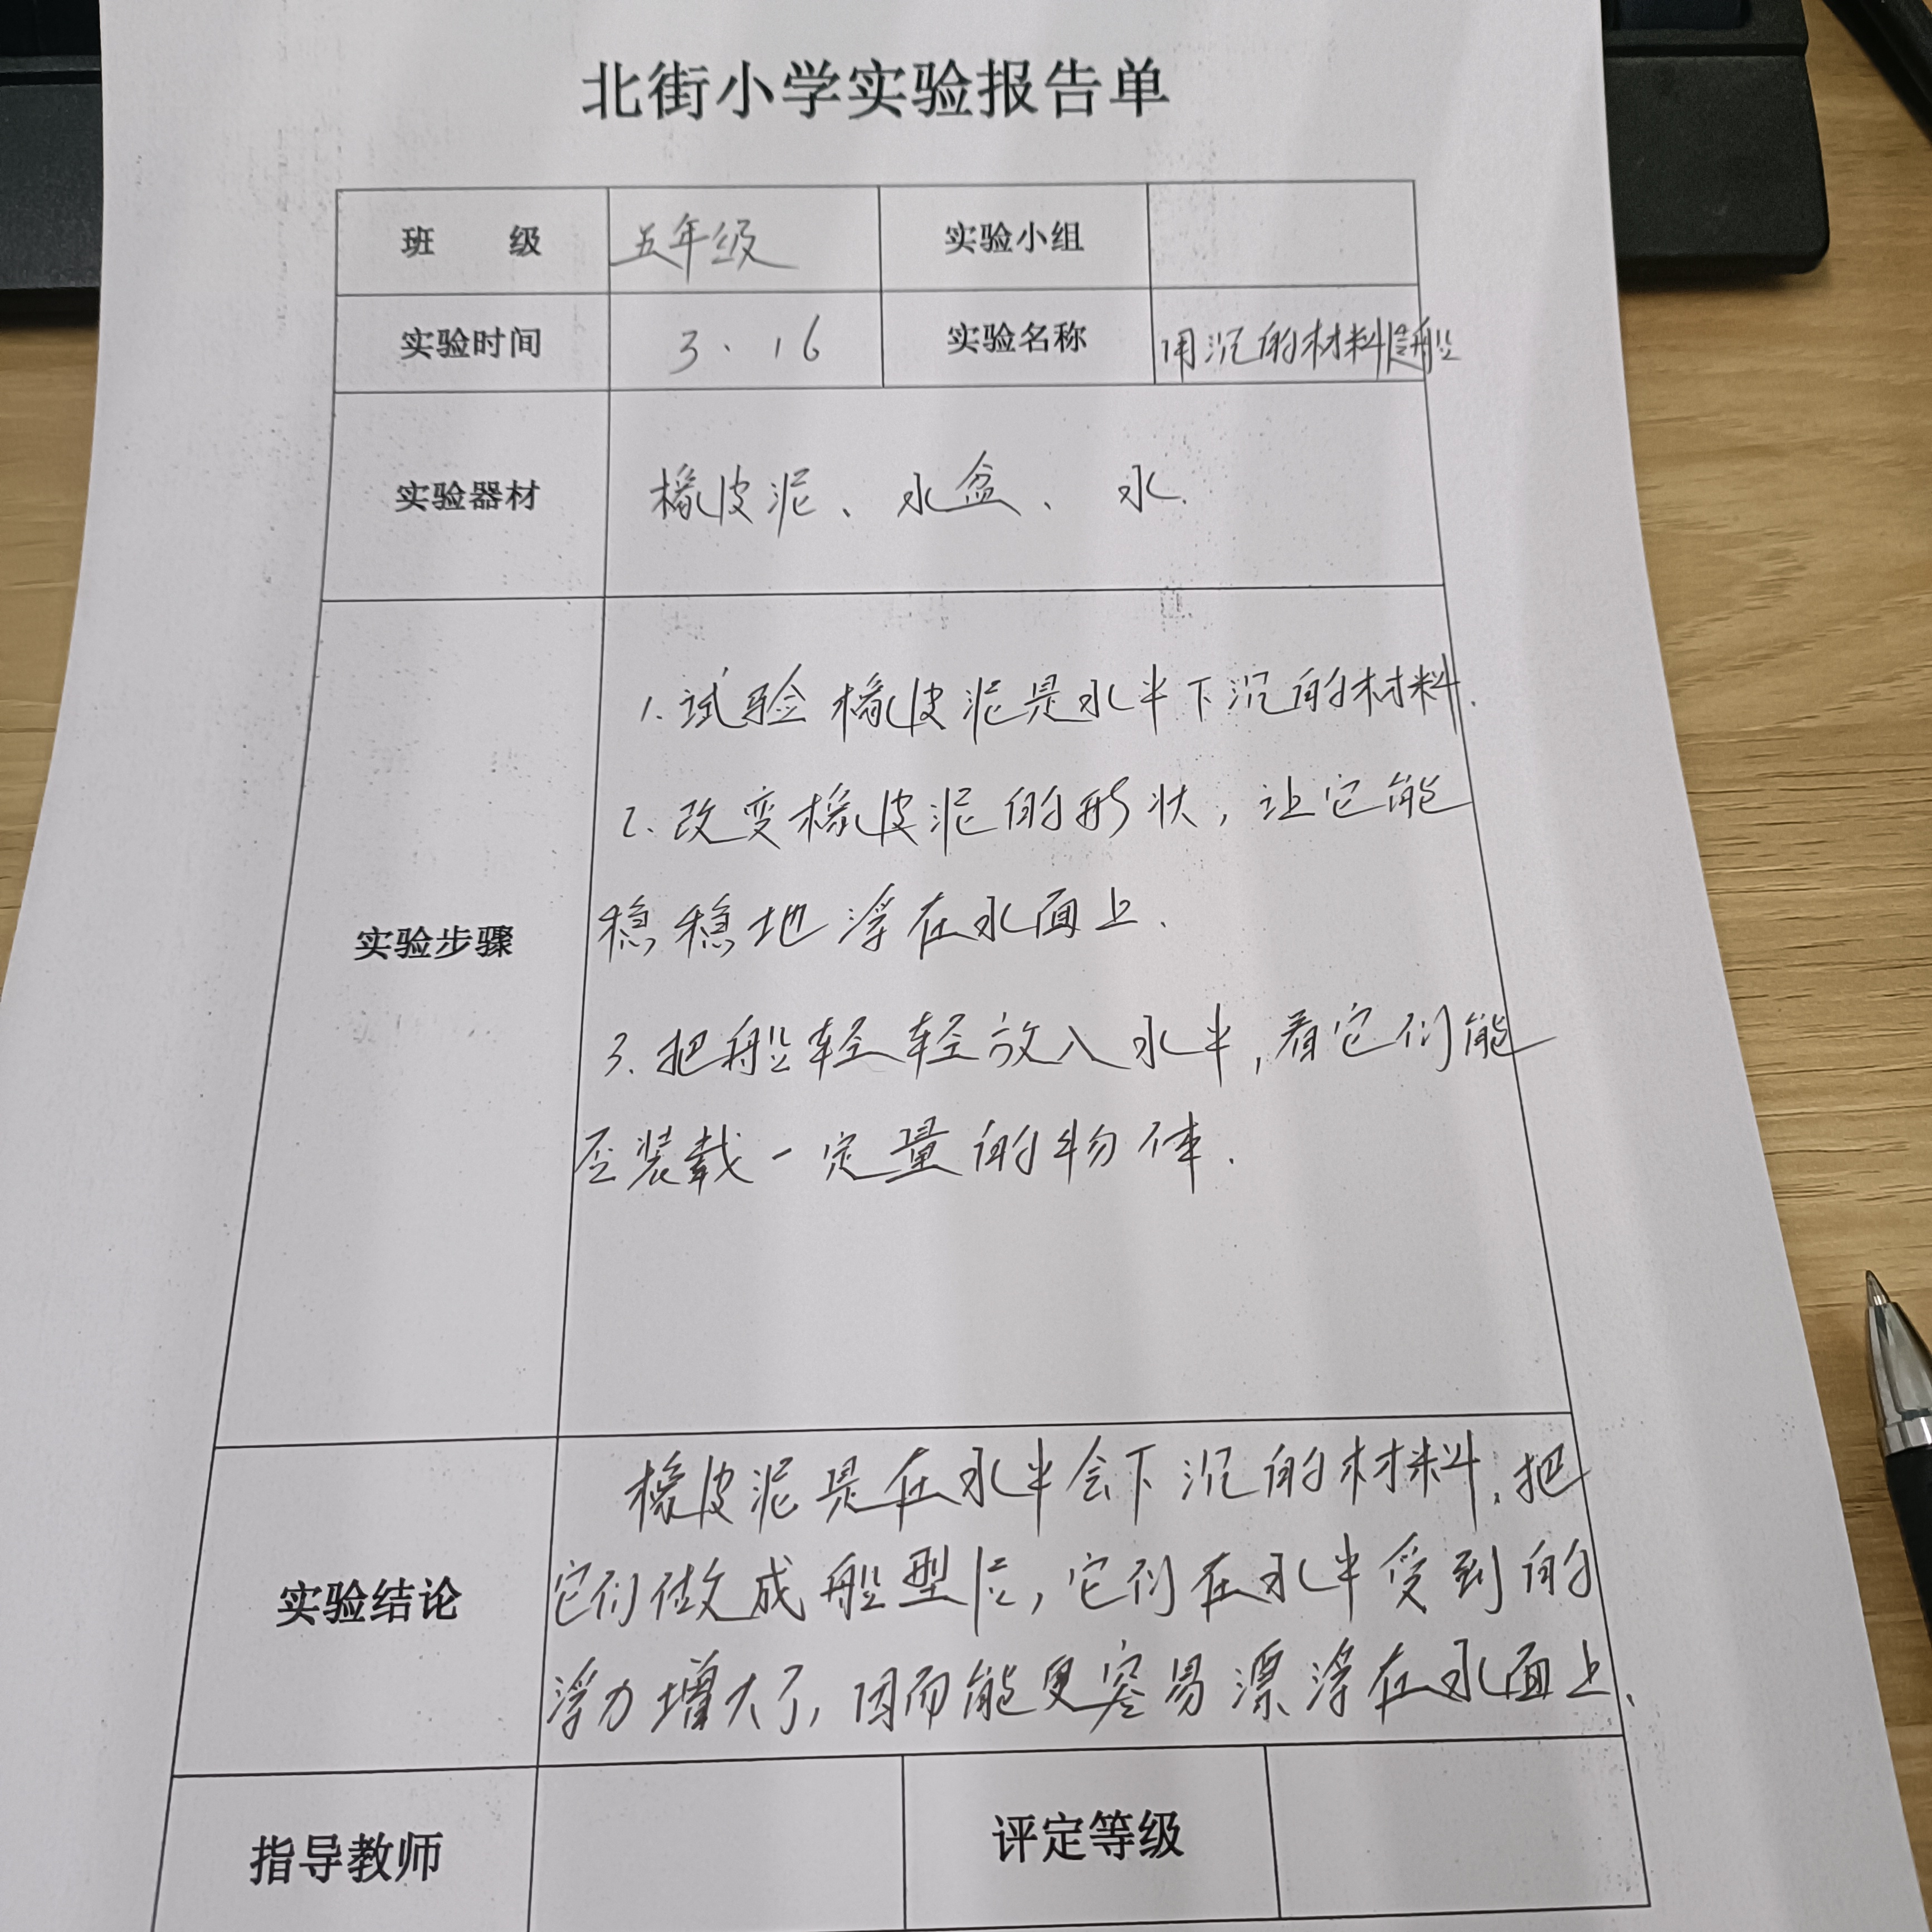 北街小学实验报告单
班 级 五年级 实验小组
实验时间 3.16 实验名称 用沉的材料造船
实验器材 橡皮泥、水盆、水.
1.试验橡皮泥是水中下沉的材料.
2.改变橡皮泥的形状,让它能
稳稳地浮在水面上.
实验步骤
3.把船轻轻放入水中,看它们能
否装载一定量的物体.
橡皮泥是在水中会下沉的材料,把
实验结论 它们做成船型后,它们在水中受到的
浮力增大了,因而能更容易漂浮在水面上、
指导教师 评定等级